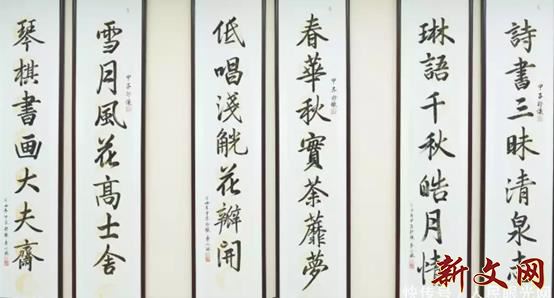 詩書三昧清泉志
琳語千秋皓月情
春華秋實荼蘼夢
低唱淺觥花瓣開
雪月風花高士舍
琴棋書画大夫齋
新文网
快传号